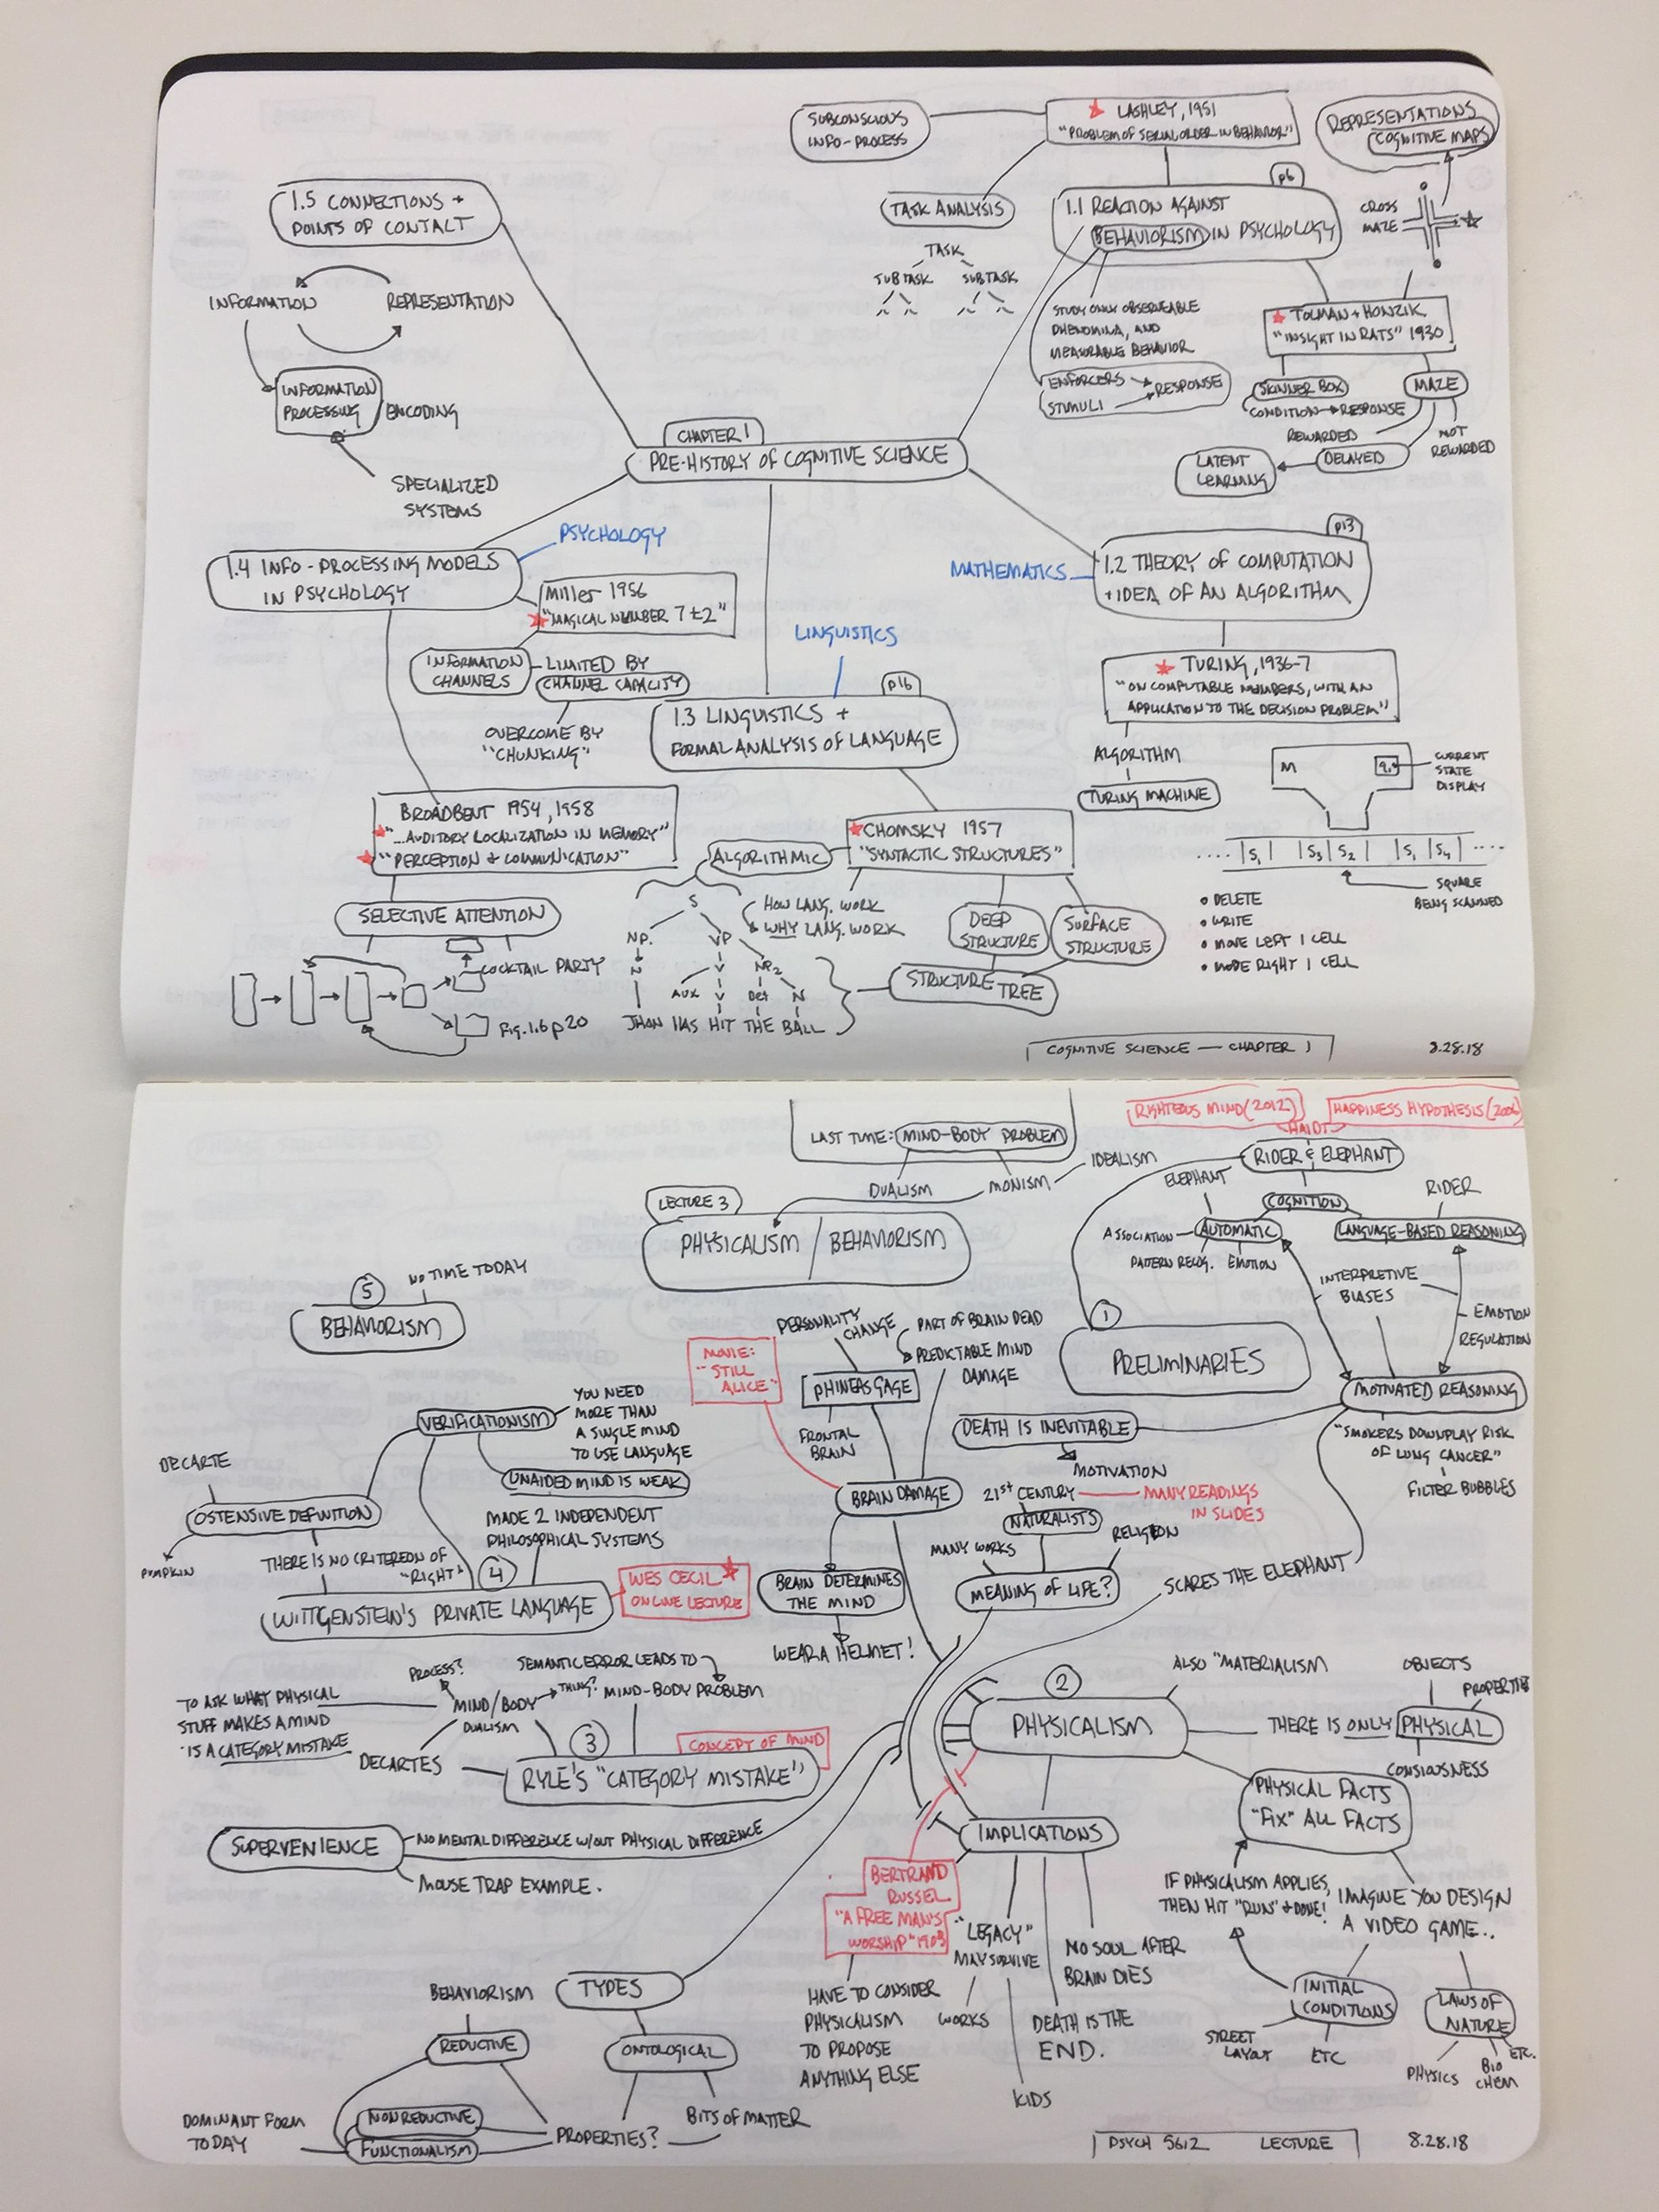 SUBCONSCIOUS
INFO-PROCESS
LASHLEY, 1951
"PROBLEM OF SERIAL ORDER IN BEHAVIOR"
REPRESENTATIONS
COGNITIVE MAPS
TASK ANALYSIS
TASK
SUBTASK SUBTASK
p6
1.1 REACTION AGAINST
BEHAVIORISM IN PSYCHOLOGY
CROSS
MAZE
STUDY ONLY OBSERVEABLE
PHENOMINA, AND
MEASURABLE BEHAVIOR
ENFORCERS → RESPONSE
STIMULI
TOLMAN + HONZIK
"INSIGHT IN RATS" 1930
SKINNER BOX
CONDITION → RESPONSE
MAZE
REWARDED
NOT
REWARDED
DELAYED
LATENT
LEARNING
1.5 CONNECTIONS +
POINTS OF CONTACT
INFORMATION REPRESENTATION
INFORMATION
PROCESSING / ENCODING
SPECIALIZED
SYSTEMS
CHAPTER 1
PRE-HISTORY OF COGNITIVE SCIENCE
PSYCHOLOGY
1.4 INFO-PROCESSING MODELS
IN PSYCHOLOGY
Miller 1956
"MAGICAL NUMBER 7±2"
INFORMATION
CHANNELS
LIMITED BY
CHANNEL CAPACITY
OVERCOME BY
"CHUNKING"
BROADBENT 1954, 1958
"...AUDITORY LOCALIZATION IN MEMORY"
"PERCEPTION & COMMUNICATION"
SELECTIVE ATTENTION
COCKTAIL PARTY
Fig. 1.6 p20
LINGUISTICS
p16
1.3 LINGUISTICS +
FORMAL ANALYSIS OF LANGUAGE
CHOMSKY 1957
"SYNTACTIC STRUCTURES"
ALGORITHMIC
HOW LANG. WORK
WHY LANG. WORK
S
NP. VP
N V NP2
AUX V Det N
JHON HAS HIT THE BALL
DEEP
STRUCTURE
SURFACE
STRUCTURE
STRUCTURE TREE
MATHEMATICS
p13
1.2 THEORY OF COMPUTATION
+ IDEA OF AN ALGORITHM
TURING, 1936-7
"ON COMPUTABLE NUMBERS, WITH AN
APPLICATION TO THE DECISION PROBLEM"
ALGORITHM
TURING MACHINE
M
CURRENT
STATE
DISPLAY
.... |S1| |S3|S2| |S1|S4| ....
SQUARE
BEING SCANNED
• DELETE
• WRITE
• MOVE LEFT 1 CELL
• MODE RIGHT 1 CELL
COGNITIVE SCIENCE — CHAPTER 1
8.28.18
RIGHTEOUS MIND (2012)
HAPPINESS HYPOTHESIS (2006)
HAIDT
LAST TIME: MIND-BODY PROBLEM
DUALISM
MONISM
IDEALISM
LECTURE 3
PHYSICALISM / BEHAVIORISM
RIDER & ELEPHANT
ELEPHANT
COGNITION
RIDER
ASSOCIATION
AUTOMATIC
LANGUAGE-BASED REASONING
PATTERN RECOG. EMOTION
INTERPRETIVE
BIASES
EMOTION
REGULATION
1
PRELIMINARIES
MOTIVATED REASONING
"SMOKERS DOWNPLAY RISK
OF LUNG CANCER"
FILTER BUBBLES
DEATH IS INEVITABLE
MOTIVATION
21st CENTURY
NATURALISTS
MANY READINGS
IN SLIDES
MANY WORKS
RELIGION
MEANING OF LIFE?
SCARES THE ELEPHANT
5
BEHAVIORISM
NO TIME TODAY
MOVIE:
"STILL
ALICE"
PERSONALITY
CHANGE
PART OF BRAIN DEAD
PREDICTABLE MIND
DAMAGE
PHINEAS GAGE
FRONTAL
BRAIN
BRAIN DAMAGE
BRAIN DETERMINES
THE MIND
WEAR A HELMET!
VERIFICATIONISM
YOU NEED
MORE THAN
A SINGLE MIND
TO USE LANGUAGE
UNAIDED MIND IS WEAK
DECARTE
OSTENSIVE DEFINITION
PUMPKIN
THERE IS NO CRITEREON OF
"RIGHT"
MADE 2 INDEPENDENT
PHILOSOPHICAL SYSTEMS
4
WITTGENSTEIN'S PRIVATE LANGUAGE
WES CECIL
ONLINE LECTURE
PROCESS?
SEMANTIC ERROR LEADS TO
MIND/BODY
DUALISM
THING?
MIND-BODY PROBLEM
TO ASK WHAT PHYSICAL
STUFF MAKES A MIND
IS A CATEGORY MISTAKE
DECARTES
3
RYLE'S "CATEGORY MISTAKE"
CONCEPT OF MIND
SUPERVENIENCE
NO MENTAL DIFFERENCE W/OUT PHYSICAL DIFFERENCE
MOUSE TRAP EXAMPLE.
2
PHYSICALISM
ALSO "MATERIALISM
OBJECTS
THERE IS ONLY PHYSICAL
CONSIOUSNESS
PHYSICAL FACTS
"FIX" ALL FACTS
IF PHYSICALISM APPLIES,
THEN HIT "RUN" + DONE!
IMAGINE YOU DESIGN
A VIDEO GAME...
INITIAL
CONDITIONS
STREET
LAYOUT
ETC
LAWS OF
NATURE
PHYSICS
BIO
CHEM
ETC.
IMPLICATIONS
BERTRAND
RUSSEL
"A FREE MAN'S
WORSHIP" 1903
HAVE TO CONSIDER
PHYSICALISM
TO PROPOSE
ANYTHING ELSE
"LEGACY"
MAY SURVIVE
WORKS
KIDS
NO SOUL AFTER
BRAIN DIES
DEATH IS THE
END.
TYPES
BEHAVIORISM
REDUCTIVE
ONTOLOGICAL
NONREDUCTIVE
FUNCTIONALISM
DOMINANT FORM
TODAY
PROPERTIES?
BITS OF MATTER
PSYCH 5612 LECTURE
8.28.18